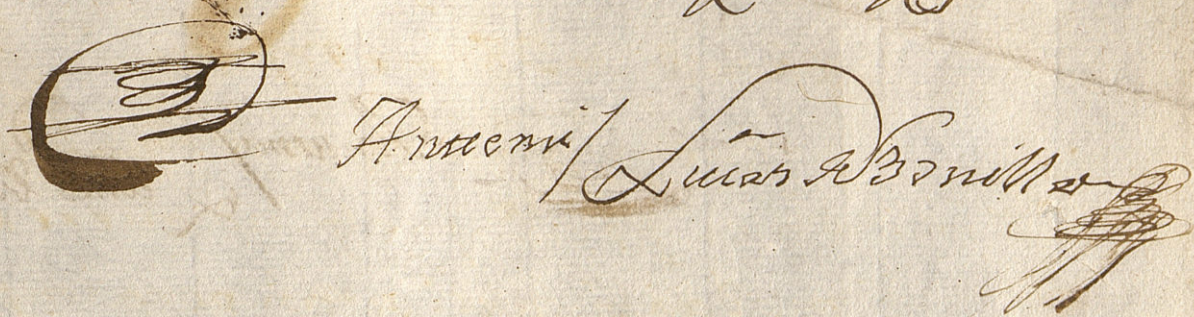 Antte mi / Lucas de Bonilla